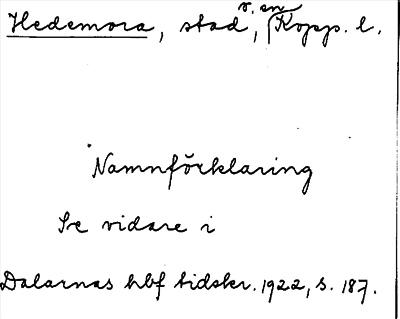 Hedemora, stad, s. en Kopp. l.
Namnförklaring
Se vidare i
Dalarnas hbf tidskr. 1922, s. 187.